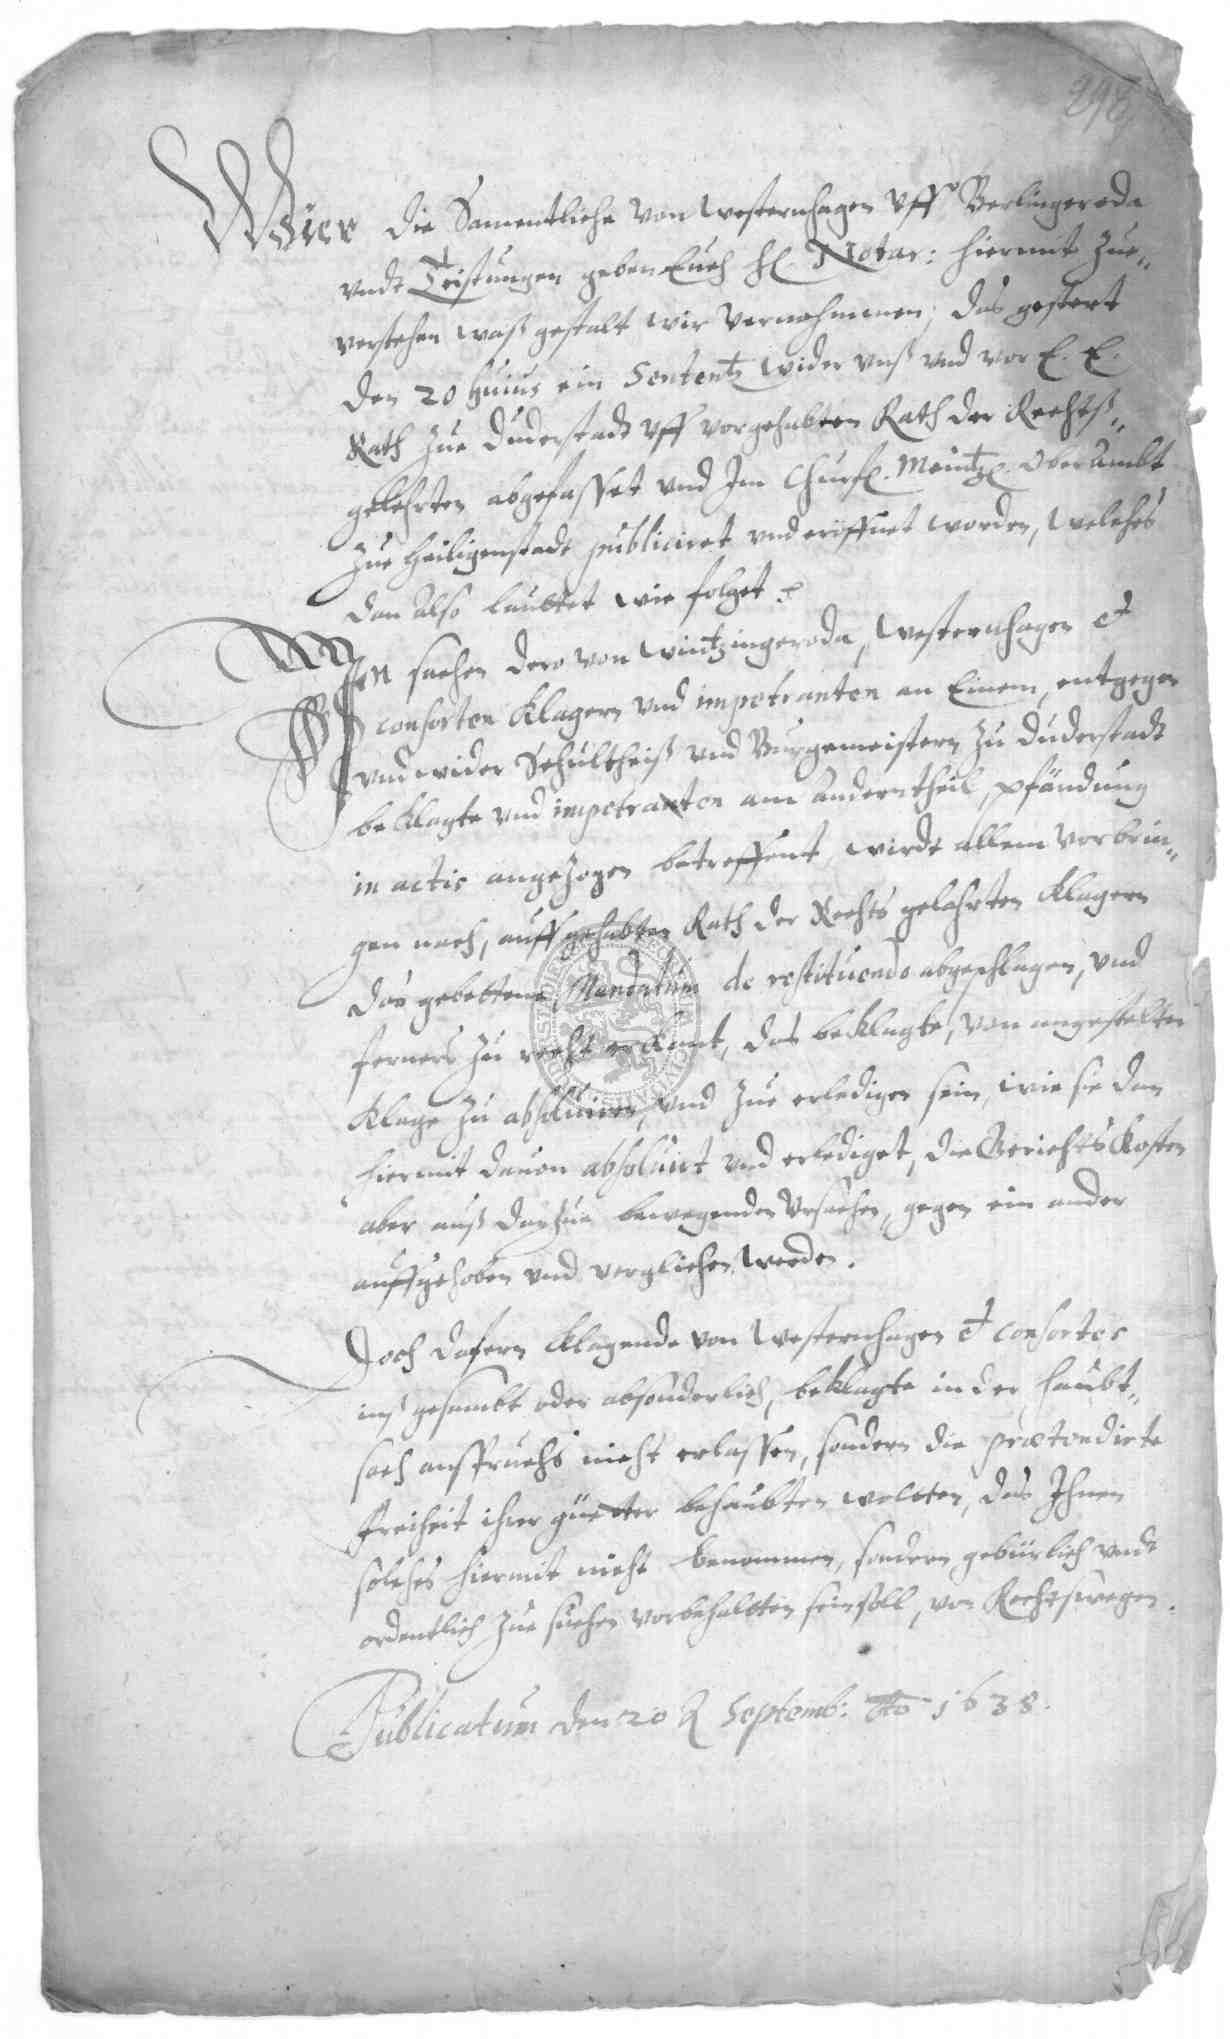 298
Wier die Samentliche von Westernhagen vff Berlingeroda
vndt Teistungen geben Euch H. Notar: hiermit zue„
verstehen waß gestalt wir vernohmmen, das gestert
den 20 huius ein Sententz wider vnß vnd vor E. E.
Rath zue Duderstadt vff vorgehabten Rath der Rechtß„
gelehrten abgefasset vnd Im Churf. Meintz. Ober Ambt
zue Heiligenstadt publiciret vnd eröffnet worden, welches
dan also lautet wie folget.
In sachen dero von Wintzingeroda, Westernhagen et
consorten Klägern vnd impetranten an Einem, entgegen
vnd wider Schultheiß vnd Burgemeistern zu Duderstadt
beklagte vnd impetraten am andern theil, pfändung
in actis angezogen betreffent, wirdt allem vorbrin„
gen nach, auff gehabten Rath der Rechts gelahrten Klägern
das gebettene Mandatum de restituendo abgeschlagen, vnd
ferners zu recht erkant, das beklagte, von angestelter
Klage zu absoluiren, vnd zue erledigen sein, wie sie dan
hiermit dauon absoluirt vnd erlediget, die Gerichts Kosten
aber auß darzue bewegenden Vrsachen, gegen ein ander
auffgehoben vnd verglichen werden.
Joch dafern klagende von Westernhagen et consortes
inß gesambt oder absonderlich, beklagte in der haubt„
sach anspruchs nicht erlassen, sondern die praetendirte
freiheit ihrer güetter behaubten wolten, das Ihnen
solches hiermit nicht benommen, sondern gebürlich vndt
ordentlich zue suchen vorbehalten sein soll, von Rechtswegen.
Publicatum den 20 Septemb: Ao 1638.